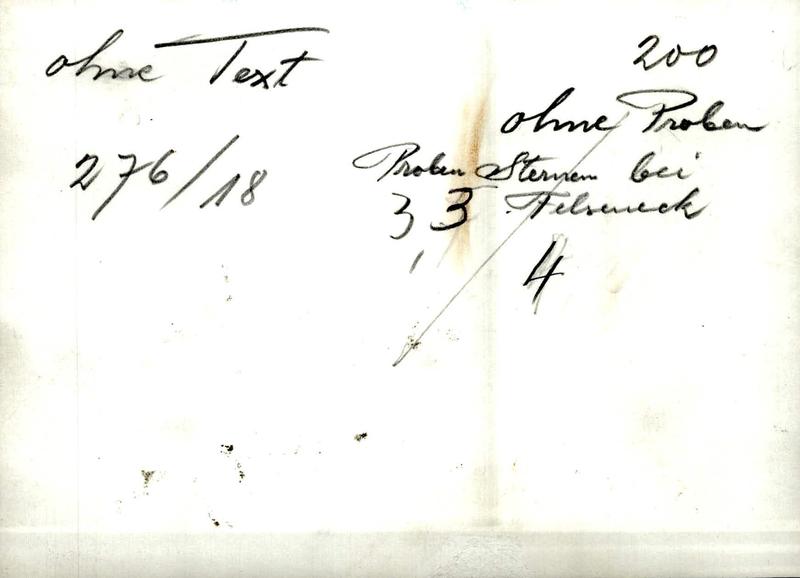 ohne Text
200
ohne Proben
276/18
Proben Sternen bei
3 3 Felseneck
4